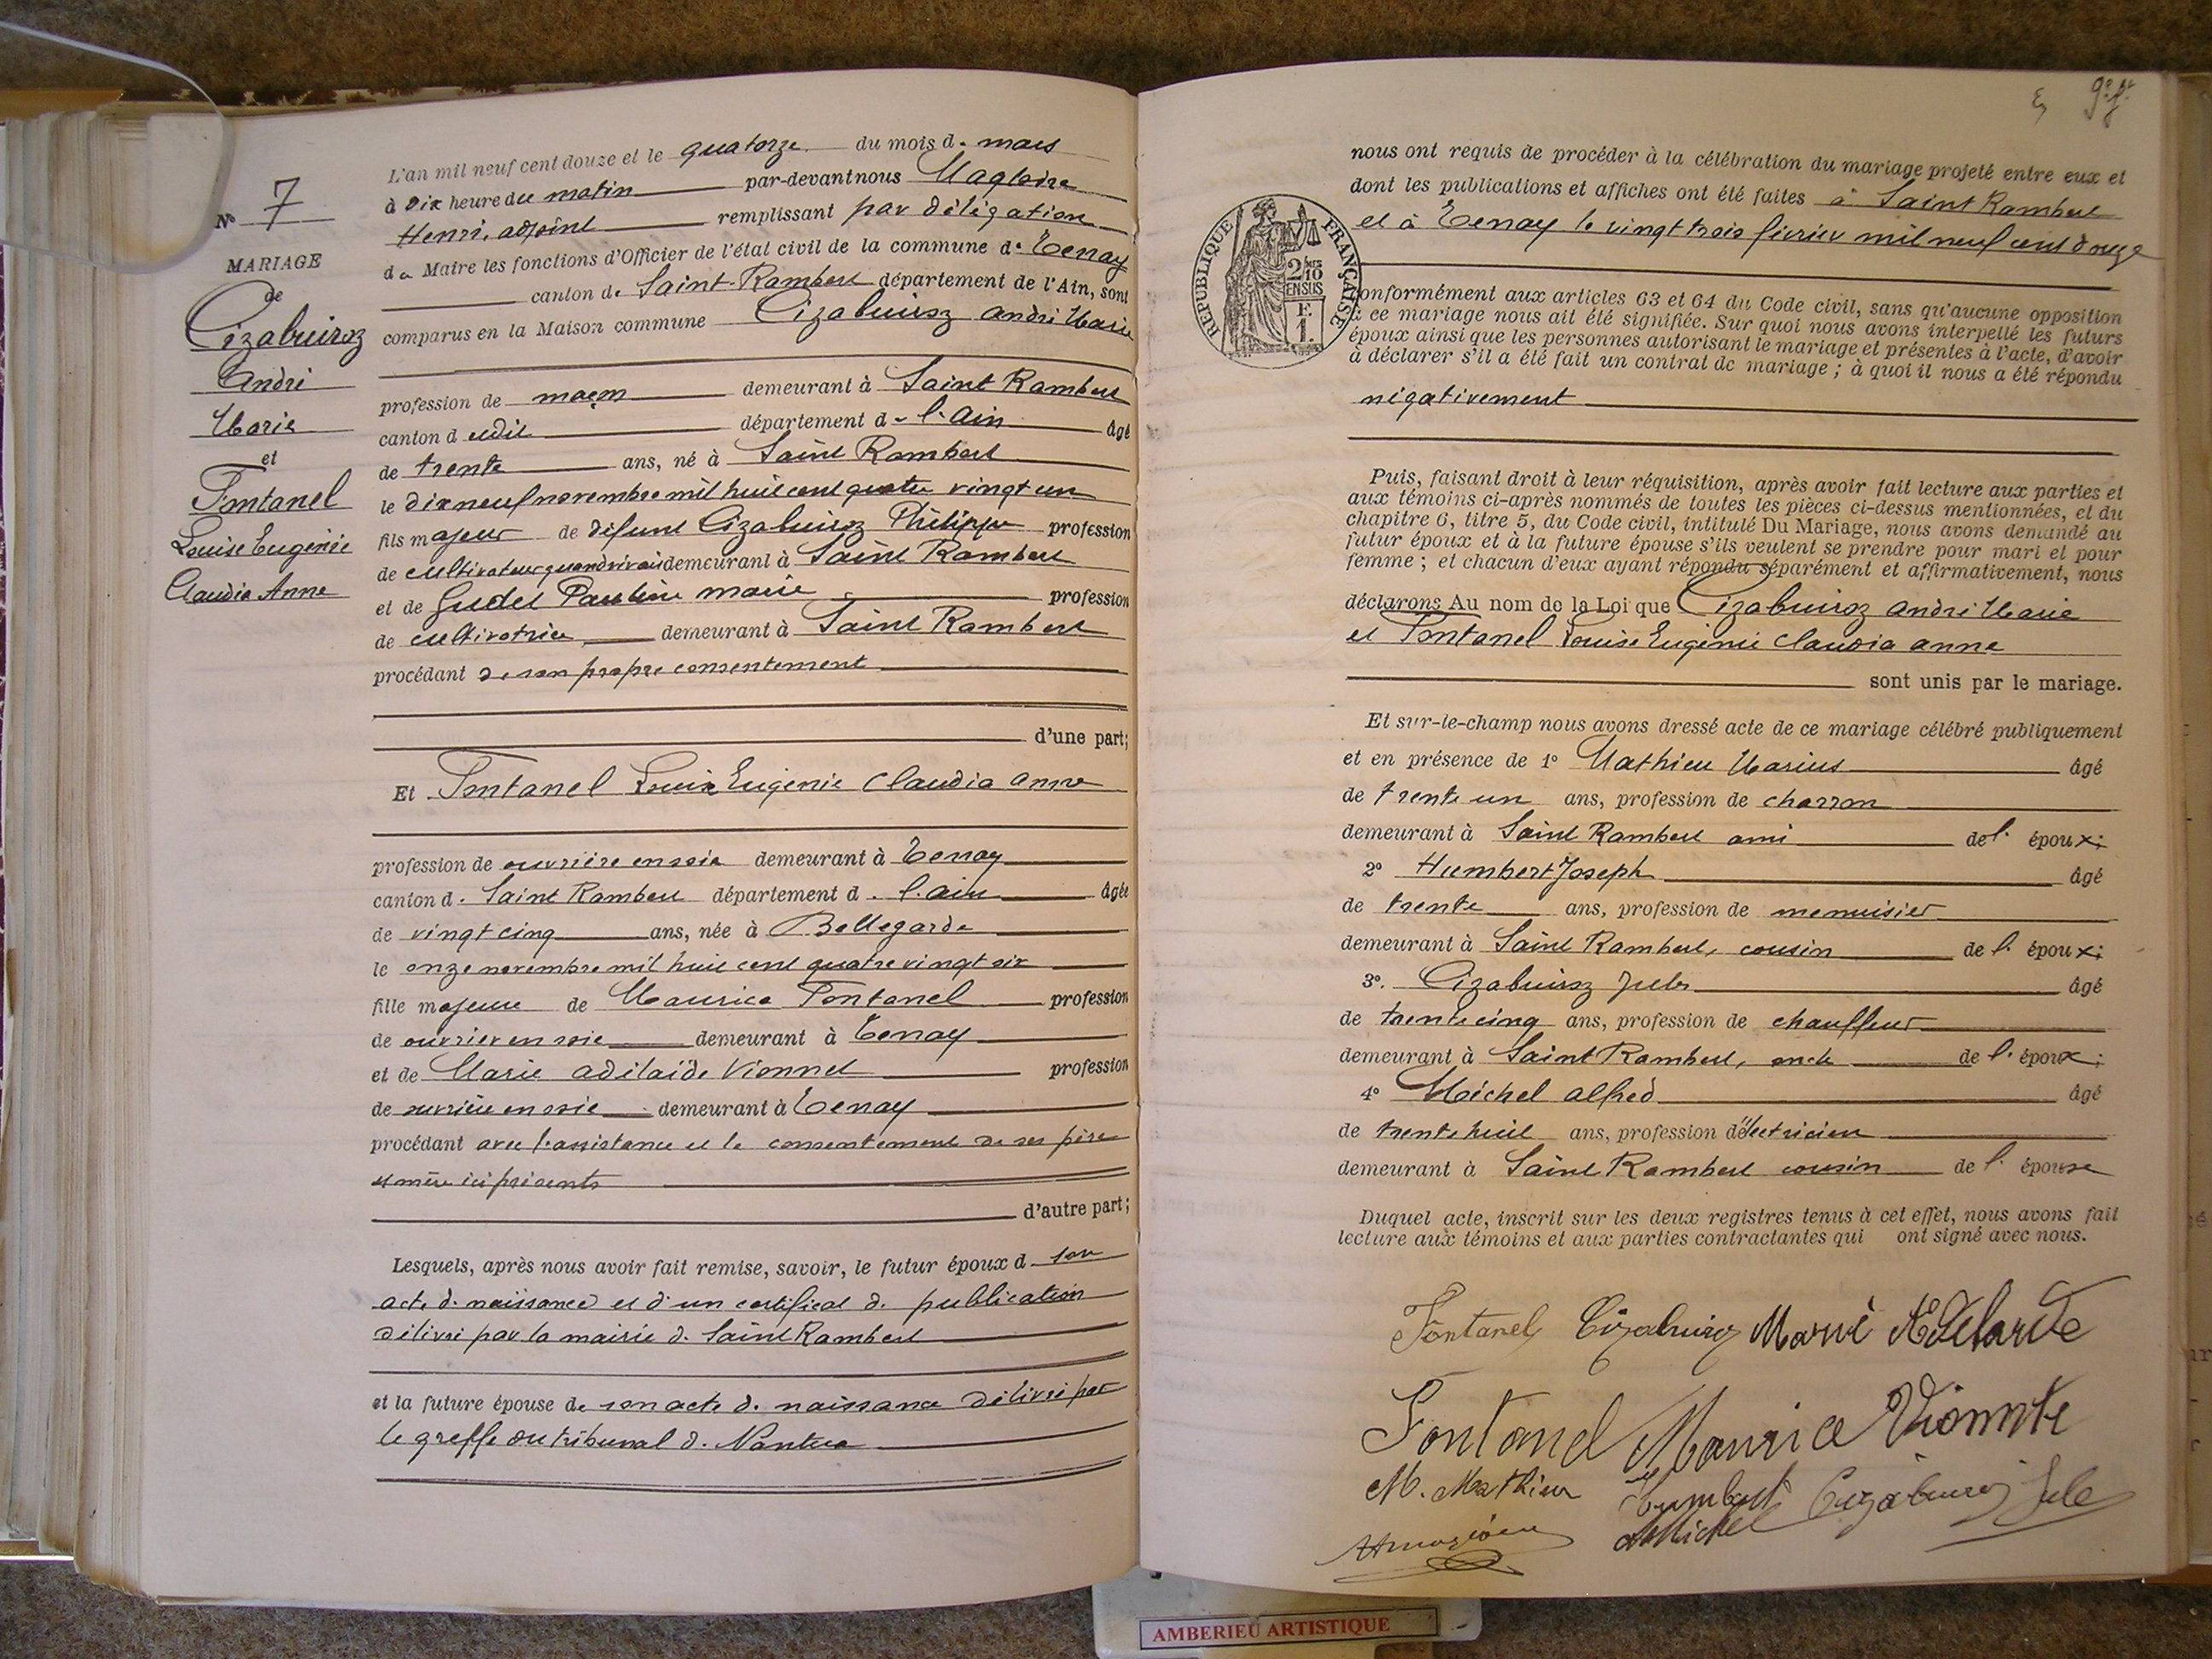 N° 7
MARIAGE
de
Cizabuiroz
André
Marie
et
Fontanel
Louise Eugénie
Claudia Anne
L'an mil neuf cent douze et le quatorze du mois d. mars
à dix heure du matin par-devant nous Magloire
Henri, adjoint remplissant par délégation
du Maire les fonctions d'Officier de l'état civil de la commune de Tenay
canton de Saint-Rambert département de l'Ain, sont
comparus en la Maison commune Cizabuiroz André Marie
profession de maçon demeurant à Saint Rambert
canton d udit département de l'Ain âgé
de trente ans, né à Saint Rambert
le dix neuf novembre mil huit cent quatre vingt un
fils majeur de défunt Cizabuiroz Philippe profession
de cultivateur quand vivait demeurant à Saint Rambert
et de Gudet Pauline marie profession
de cultivatrice demeurant à Saint Rambert
procédant de son propre consentement
d'une part;
Et Fontanel Louise Eugénie Claudia anne
profession de ouvrière en soie demeurant à Tenay
canton d. Saint Rambert département d. l'ain âgée
de vingt cinq ans, née à Bellegarde
le onze novembre mil huit cent quatre vingt six
fille majeure de Maurice Fontanel profession
de ouvrier en soie demeurant à Tenay
et de Marie adélaïde Vionnet profession
de ouvrière en soie demeurant à Tenay
procédant avec l'assistance et le consentement de ses père
et mère ici présents
d'autre part;
Lesquels, après nous avoir fait remise, savoir, le futur époux d son
acte de naissance et d'un certificat de publication
délivré par la mairie de Saint Rambert
et la future épouse de son acte de naissance délivré par
le greffe du tribunal de Nantua
9e ft
nous ont requis de procéder à la célébration du mariage projeté entre eux et
dont les publications et affiches ont été faites à Saint Rambert
et à Tenay le vingt trois février mil neuf cent douze
RÉPUBLIQUE FRANÇAISE
2/10
EN SUS
F.
1.
conformément aux articles 63 et 64 du Code civil, sans qu'aucune opposition
à ce mariage nous ait été signifiée. Sur quoi nous avons interpellé les futurs
époux ainsi que les personnes autorisant le mariage et présentes à l'acte, d'avoir
à déclarer s'il a été fait un contrat de mariage ; à quoi il nous a été répondu
négativement
Puis, faisant droit à leur réquisition, après avoir fait lecture aux parties et
aux témoins ci-après nommés de toutes les pièces ci-dessus mentionnées, et du
chapitre 6, titre 5, du Code civil, intitulé Du Mariage, nous avons demandé au
futur époux et à la future épouse s'ils veulent se prendre pour mari et pour
femme ; et chacun d'eux ayant répondu séparément et affirmativement, nous
déclarons Au nom de la Loi que Cizabuiroz André Marie
et Fontanel Louise Eugénie Claudia anne
sont unis par le mariage.
Et sur-le-champ nous avons dressé acte de ce mariage célébré publiquement
et en présence de 1° Mathieu Marius âgé
de trente un ans, profession de charron
demeurant à Saint Rambert ami de l' époux;
2° Humbert Joseph âgé
de trente ans, profession de menuisier
demeurant à Saint Rambert, cousin de l' époux;
3°. Cizabuiroz Jules âgé
de trente cinq ans, profession de chauffeur
demeurant à Saint Rambert, oncle de l' époux;
4° Michel alfred âgé
de trente huit ans, profession d'électricien
demeurant à Saint Rambert cousin de l' épouse
Duquel acte, inscrit sur les deux registres tenus à cet effet, nous avons fait
lecture aux témoins et aux parties contractantes qui ont signé avec nous.
Fontanel Cizabuiroz Marie Adelaide
Fontanel Maurice Vionnte
M. Mathieu Humbert Cizabuiroz Jule
A Michel
AMBERIEU ARTISTIQUE